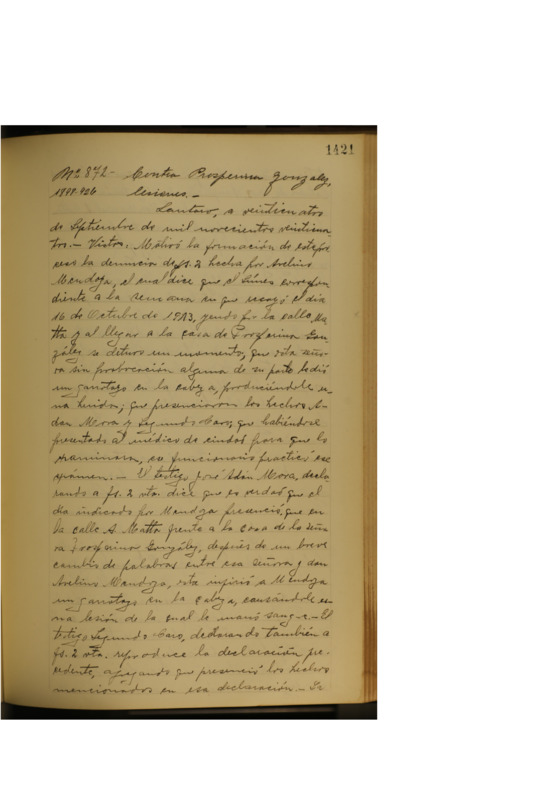 1421
Nº 872- Contra Prosperina Gonzalez,
lesiones.-
Lautaro, a veinticuatro
de Septiembre de mil novecientos veinticua
tro.- Vistos: Motivó la formación de este pro
ceso la denuncia de fs. 2 hecha por Avelino
Mendoza, el cual dice que el Lúnes correspon
diente a la semana en que recayó el día
16 de Octubre de 1923, yendo por la calle Ma
tta y al llegar a la casa de Prosperina Gon
zález se detuvo un momento, que esta seño
ra sin provocación alguna de su parte le dió
un garrotazo en la cabeza, produciéndole u
na herida; que presenciaron los hechos A
dan Mora y Segundo Caro; que habiéndose
presentado al médico de ciudad para que lo
examinara, ese funcionario practicó ese
exámen.- El testigo José Adán Mora, decla
rando a fs. 2 vta. dice que es verdad que el
día indicado por Mendoza presenció, que en
la calle A. Matta frente a la casa de la seño
ra Prosperina González, después de un breve
cambio de palabras entre esa señora y don
Avelino Mendoza, esta infirió a Mendoza
un garrotazo en la cabeza, causándole u
na lesión de la cual le manó sangre.- El
testigo Segundo Caro, declarando también a
fs. 2 vta. reproduce la declaración pre
cedente, agregando que presenció los hechos
mencionados en esa declaración.- Se